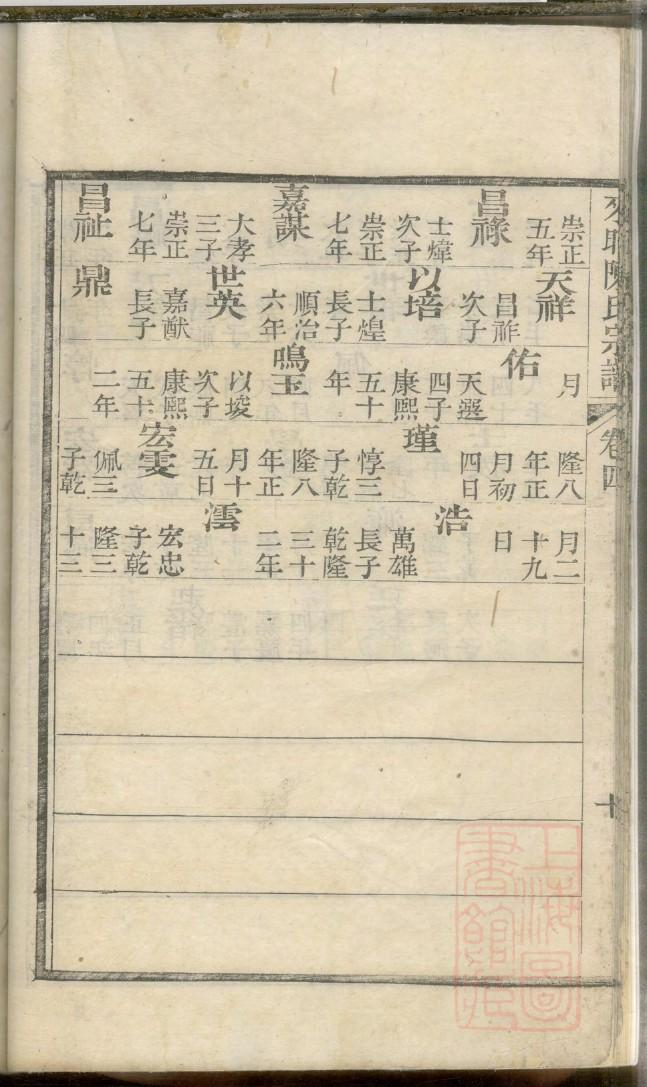 陳氏宗譜
卷四
十
崇正
五年
昌祿
士煒
次子
崇正
七年
嘉謀
大孝
三子
崇正
七年
昌祉
天祥
昌祚
次子
以培
士煌
長子
順治
六年
世英
嘉猷
長子
鼎
月
佑
天選
四子
康熙
五十
年
鳴玉
以埈
次子
康熙
五十
二年
隆八
年正
月初
四日
瑾
惇三
子乾
隆八
年正
月十
五日
宏雯
佩三
子乾
月二
十九
日
浩
萬雄
長子
乾隆
三十
二年
澐
宏忠
子乾
隆三
十三
上海圖
書館藏